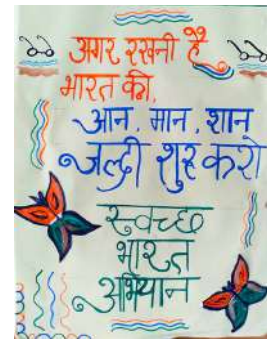 अगर रखनी है
भारत की,
आन, मान, शान
जल्दी शुरु करो
स्वच्छ
भारत
अभियान